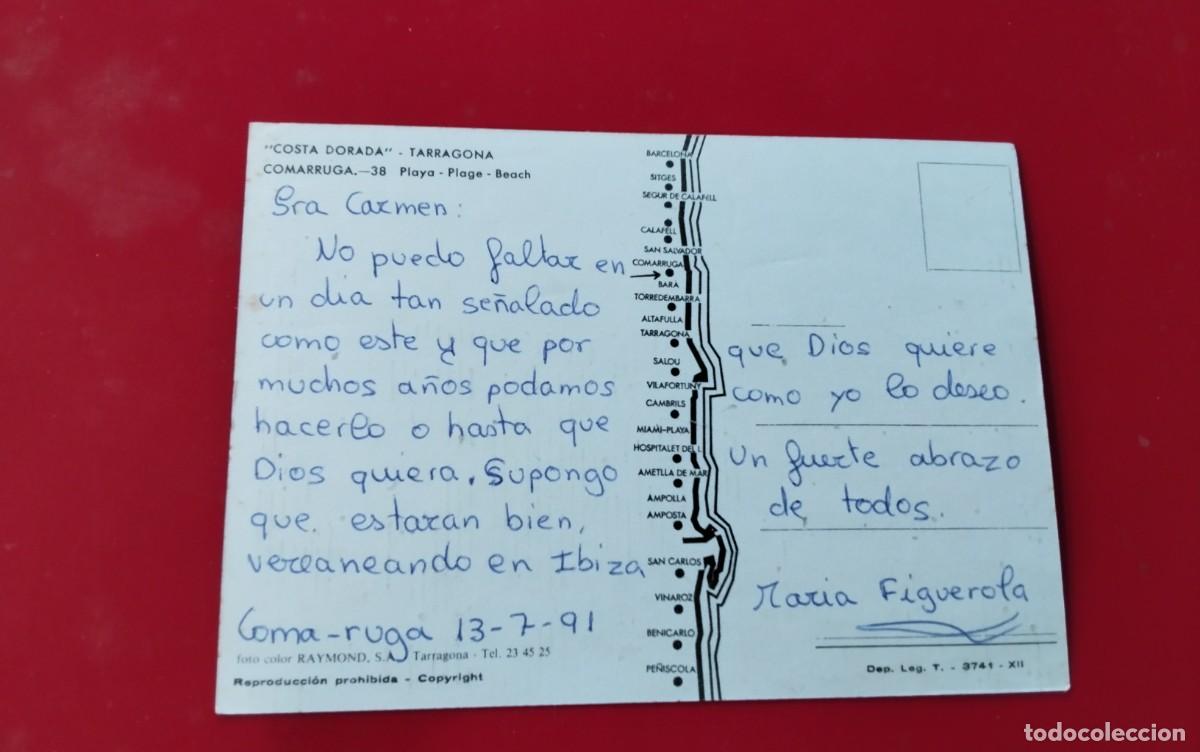 "COSTA DORADA" - TARRAGONA
COMARRUGA.—38 Playa - Plage - Beach
Sra Carmen:
No puedo faltar en
un dia tan señalado
como este y que por
muchos años podamos
hacerlo o hasta que
Dios quiera. Supongo
que estaran bien,
vereaneando en Ibiza
Coma-ruga 13-7-91
foto color RAYMOND, S.A. Tarragona - Tel. 23 45 25
Reproducción prohibida - Copyright
BARCELONA
SITGES
SEGUR DE CALAFELL
CALAFELL
SAN SALVADOR
COMARRUGA
BARA
TORREDEMBARRA
ALTAFULLA
TARRAGONA
SALOU
VILAFORTUNY
CAMBRILS
MIAMI-PLAYA
HOSPITALET DEL I.
AMETLLA DE MAR
AMPOLLA
AMPOSTA
SAN CARLOS
VINAROZ
BENICARLO
PEÑISCOLA
que Dios quiere
como yo lo deseo.
Un fuerte abrazo
de todos.
Maria Figuerola
Dep. Leg. T. - 3741 - XII
todocoleccion